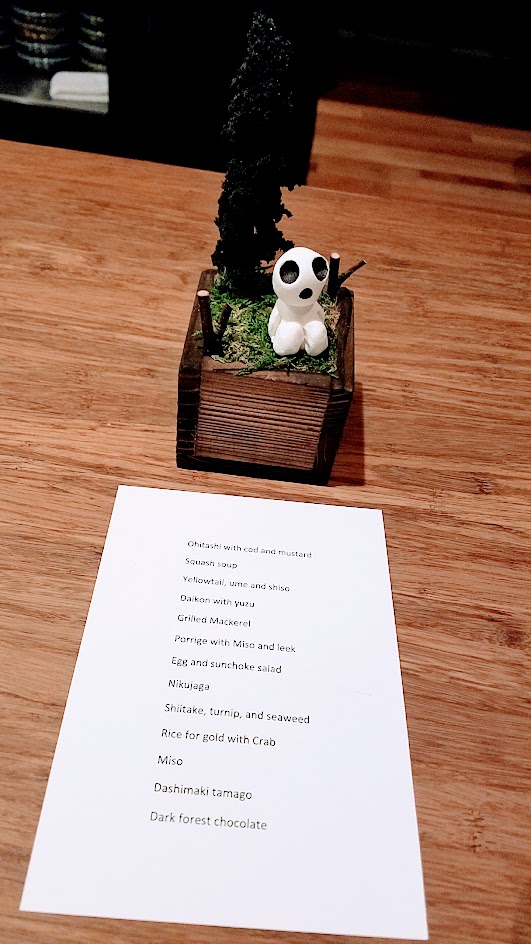 Ohitashi with cod and mustard
Squash soup
Yellowtail, ume and shiso
Daikon with yuzu
Grilled Mackerel
Porrige with Miso and leek
Egg and sunchoke salad
Nikujaga
Shiitake, turnip, and seaweed
Rice for gold with Crab
Miso
Dashimaki tamago
Dark forest chocolate